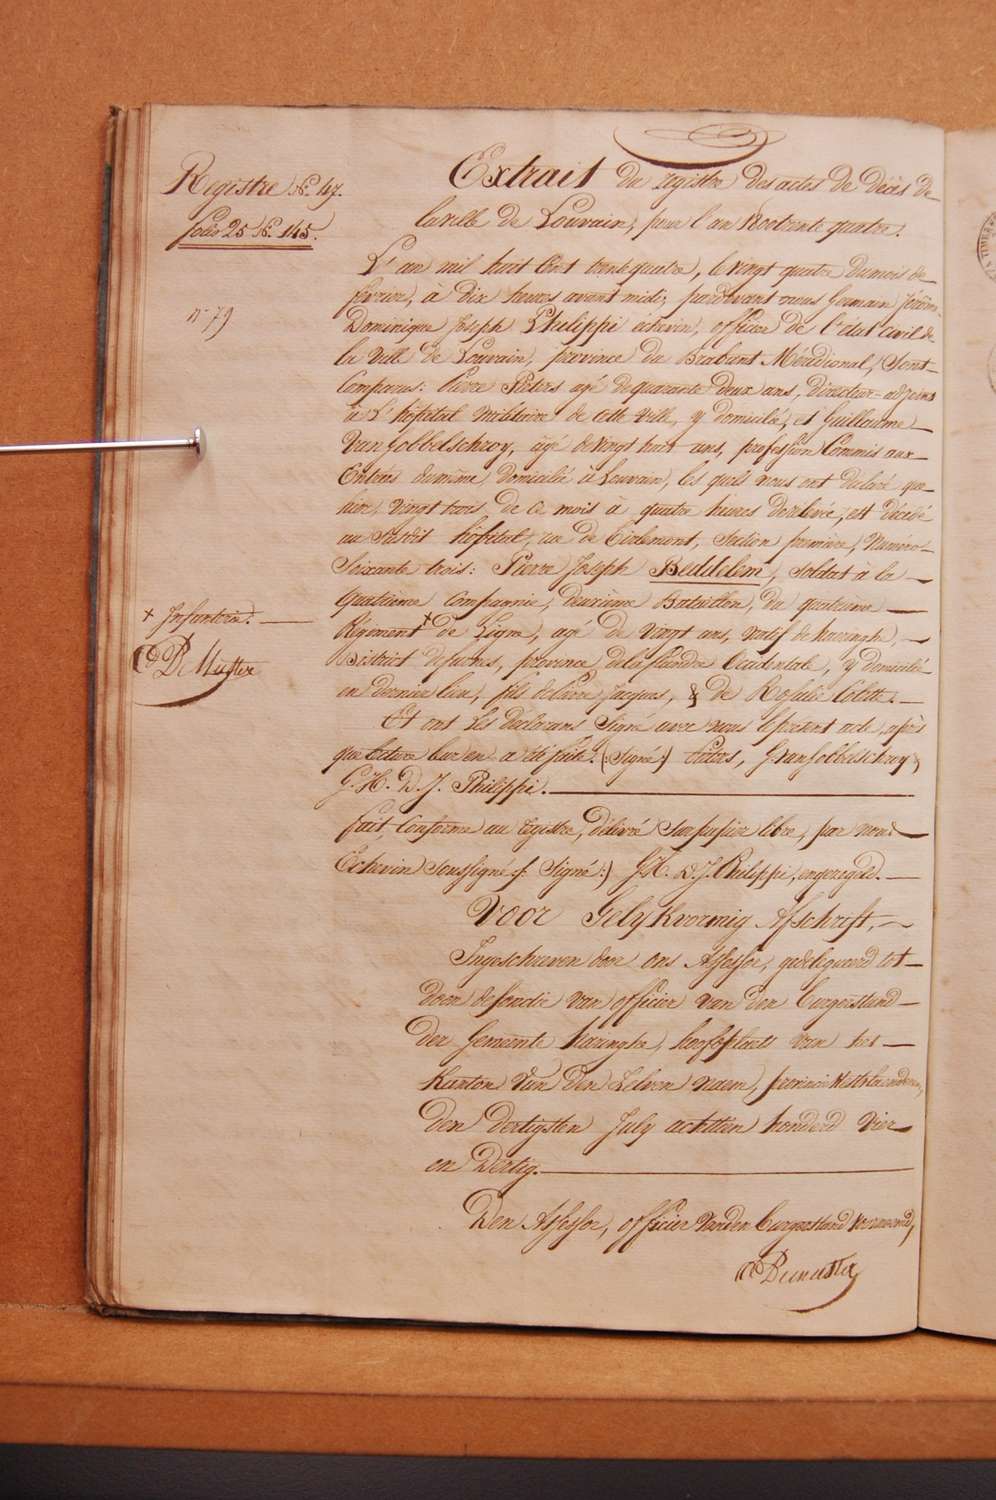 Registre No. 47.
folio 25 No. 145.
n° 79
Extrait du registre des actes de décès de
la ville de Louvain, pour l'an 18cent trente quatre.
L'an mil huit Cent trente quatre, le vingt quatre du mois de
février, à dix heures avant midi; pardevant nous Germain Jérôme
Dominique Joseph Philippi échevin, officier de l'état civil de
la ville de Louvain, province du Brabant Méridional, Sont
Comparus: Pierre Peeters agé de quarante deux ans, Directeur-adjoint
à l'hôpital militaire de cette ville, y domicilié, et Guillaume
Van Gobbelschroy, âgé de vingt huit ans, profession Commis aux
Entrées du même, domicilié à Louvain, les quels nous ont déclaré que
hier, vingt trois de ce mois à quatre heures de relevée, est décédé
au susdit hôpital, rue de Tirlemont, Section première, Numéro
Soixante trois: Pierre Joseph Beddelem, soldat à la
Quatrième Compagnie, deuxième Bataillon, du quatrième
Régiment x de Ligne, agé de vingt ans, natif de haringhe,
District de furnes, province de la flandre Occidentale, y domicilié
en dernier lieu, fils de Pierre Jacques, & de Rosalie Colette.
x Infanterie.
C D De Muster
Et ont les déclarans Signé avec nous le présent acte, après
que lecture leur en a été faite. (:Signé:) Peeters, G VanGobbelschroy,
G. H. D. J. Philippi.
fait Conforme au registre, délivré sur papier libre, par nous
Echevin Soussigné (: Signé:) G.H. D. J. Philippi,
Voor Gelykvormig Afschrift,
Ingeschreven door Ons Assessor, gedelegueerd tot
doen de fonctie van officier van den burgerstand
der Gemeente haringhe, hoofdplaats van het
Kanton van den Zelven naem, provincie Westvlaenderen,
den dertigsten July achttien honderd vier
en Dertig.
Den Assessor, officier van den burgerstand voornoemd,
C D Demuster